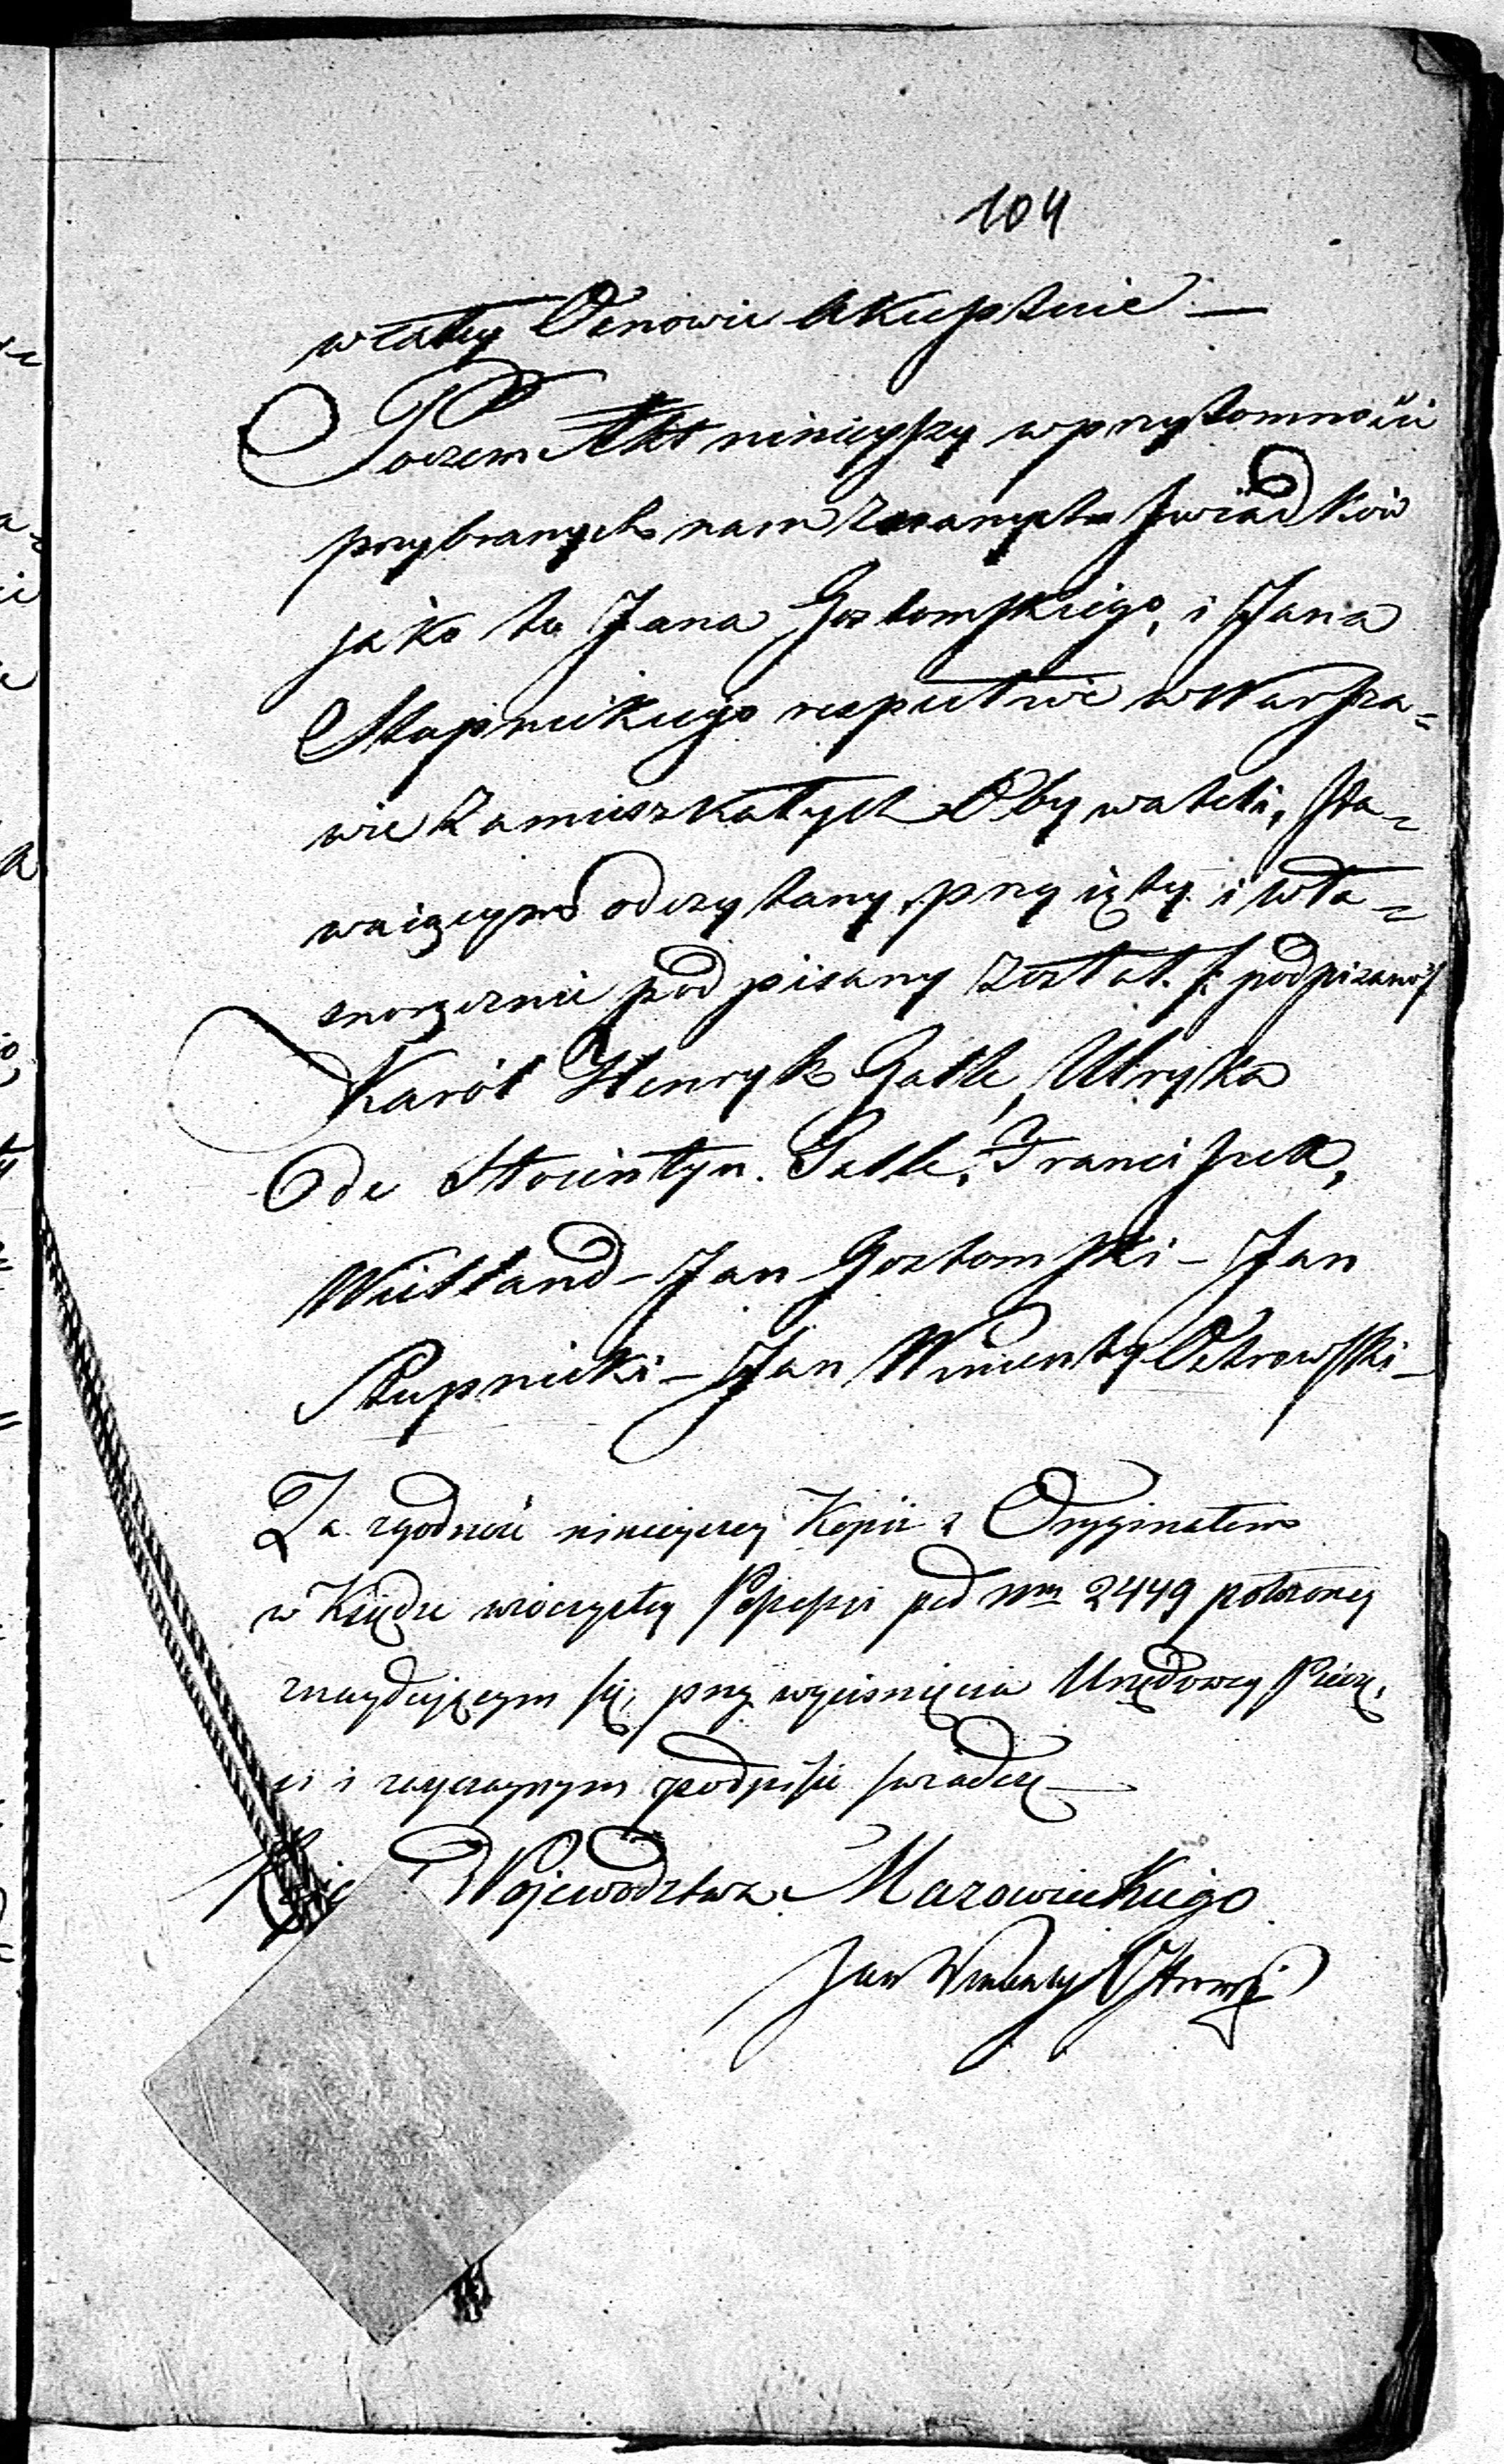 104
w całey Osnowie akceptuie —
Poczem Akt ninieyszy w przytomności
przybranych nam znanych Swiadków
jako to Jana Gostomskiego, i Jana
Słupnickiego respective w Warsza=
wie Zamieszkałych Obywateli, sta=
waiącym odczytany, przyięty i wła=
snoręcznie podpisany został. /: podpisano :/
Karól Henryk Galle, Ulryka
de Galle, Franciszek,
Wietland – Jan Gostomski – Jan
Słupnicki – Jan Wincenty Ostrowski –
Za zgodność ninieyszey Kopii z Oryginałem
w Księdze wieczystey Possessyi pod Nrm 2449 położoney
znayduiącym się, przy wyciśnięciu Urzędowey Pieczę,
ci i zwyczaynym podpisie świadczę —
Woiewodztwa Mazowieckiego
Jan Wincenty Ostrowski